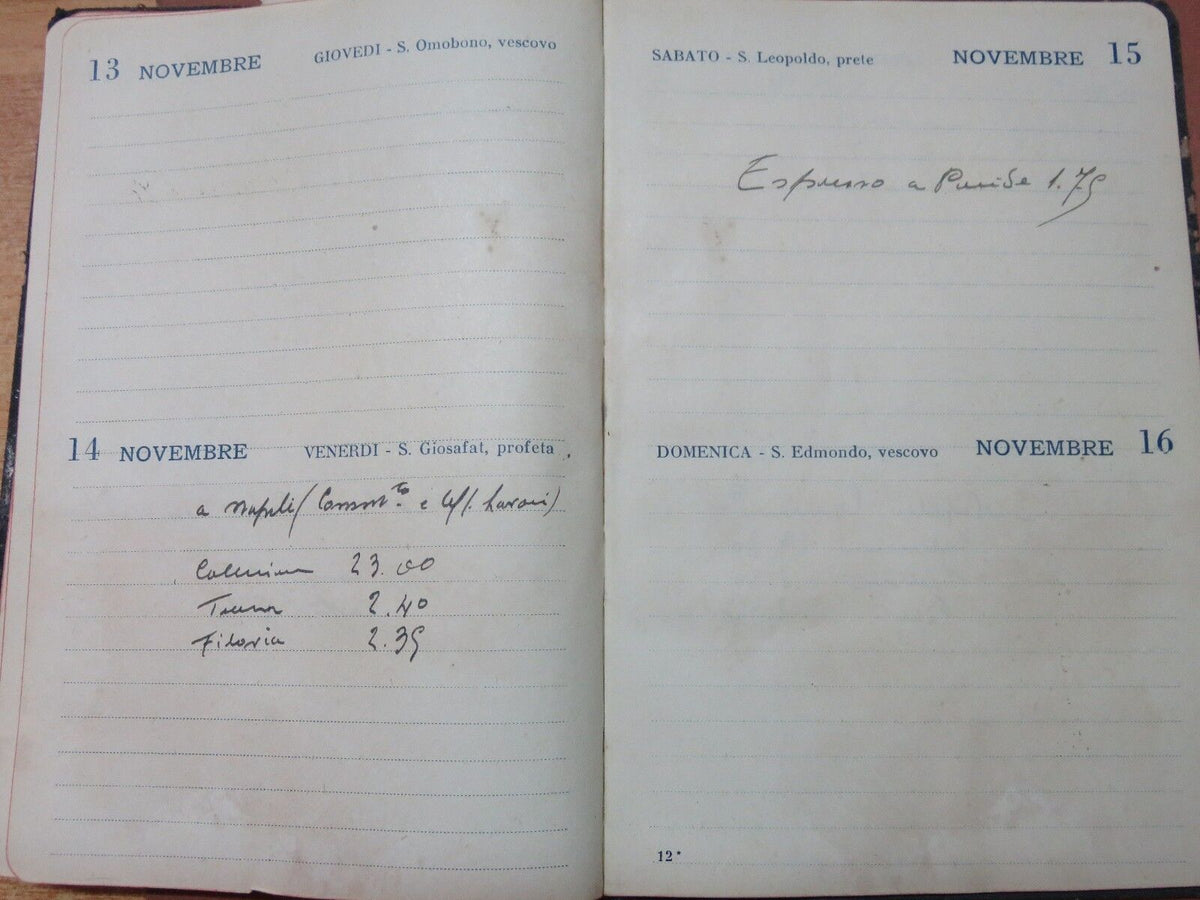 13 NOVEMBRE GIOVEDI - S. Omobono, vescovo
14 NOVEMBRE VENERDI - S. Giosafat, profeta
a Napoli ( e Uff. Lavori)
Colazione 23.00
Treno 2.40
Filovia 2.35
SABATO - S. Leopoldo, prete NOVEMBRE 15
Espresso a 1.75
DOMENICA - S. Edmondo, vescovo NOVEMBRE 16
12*